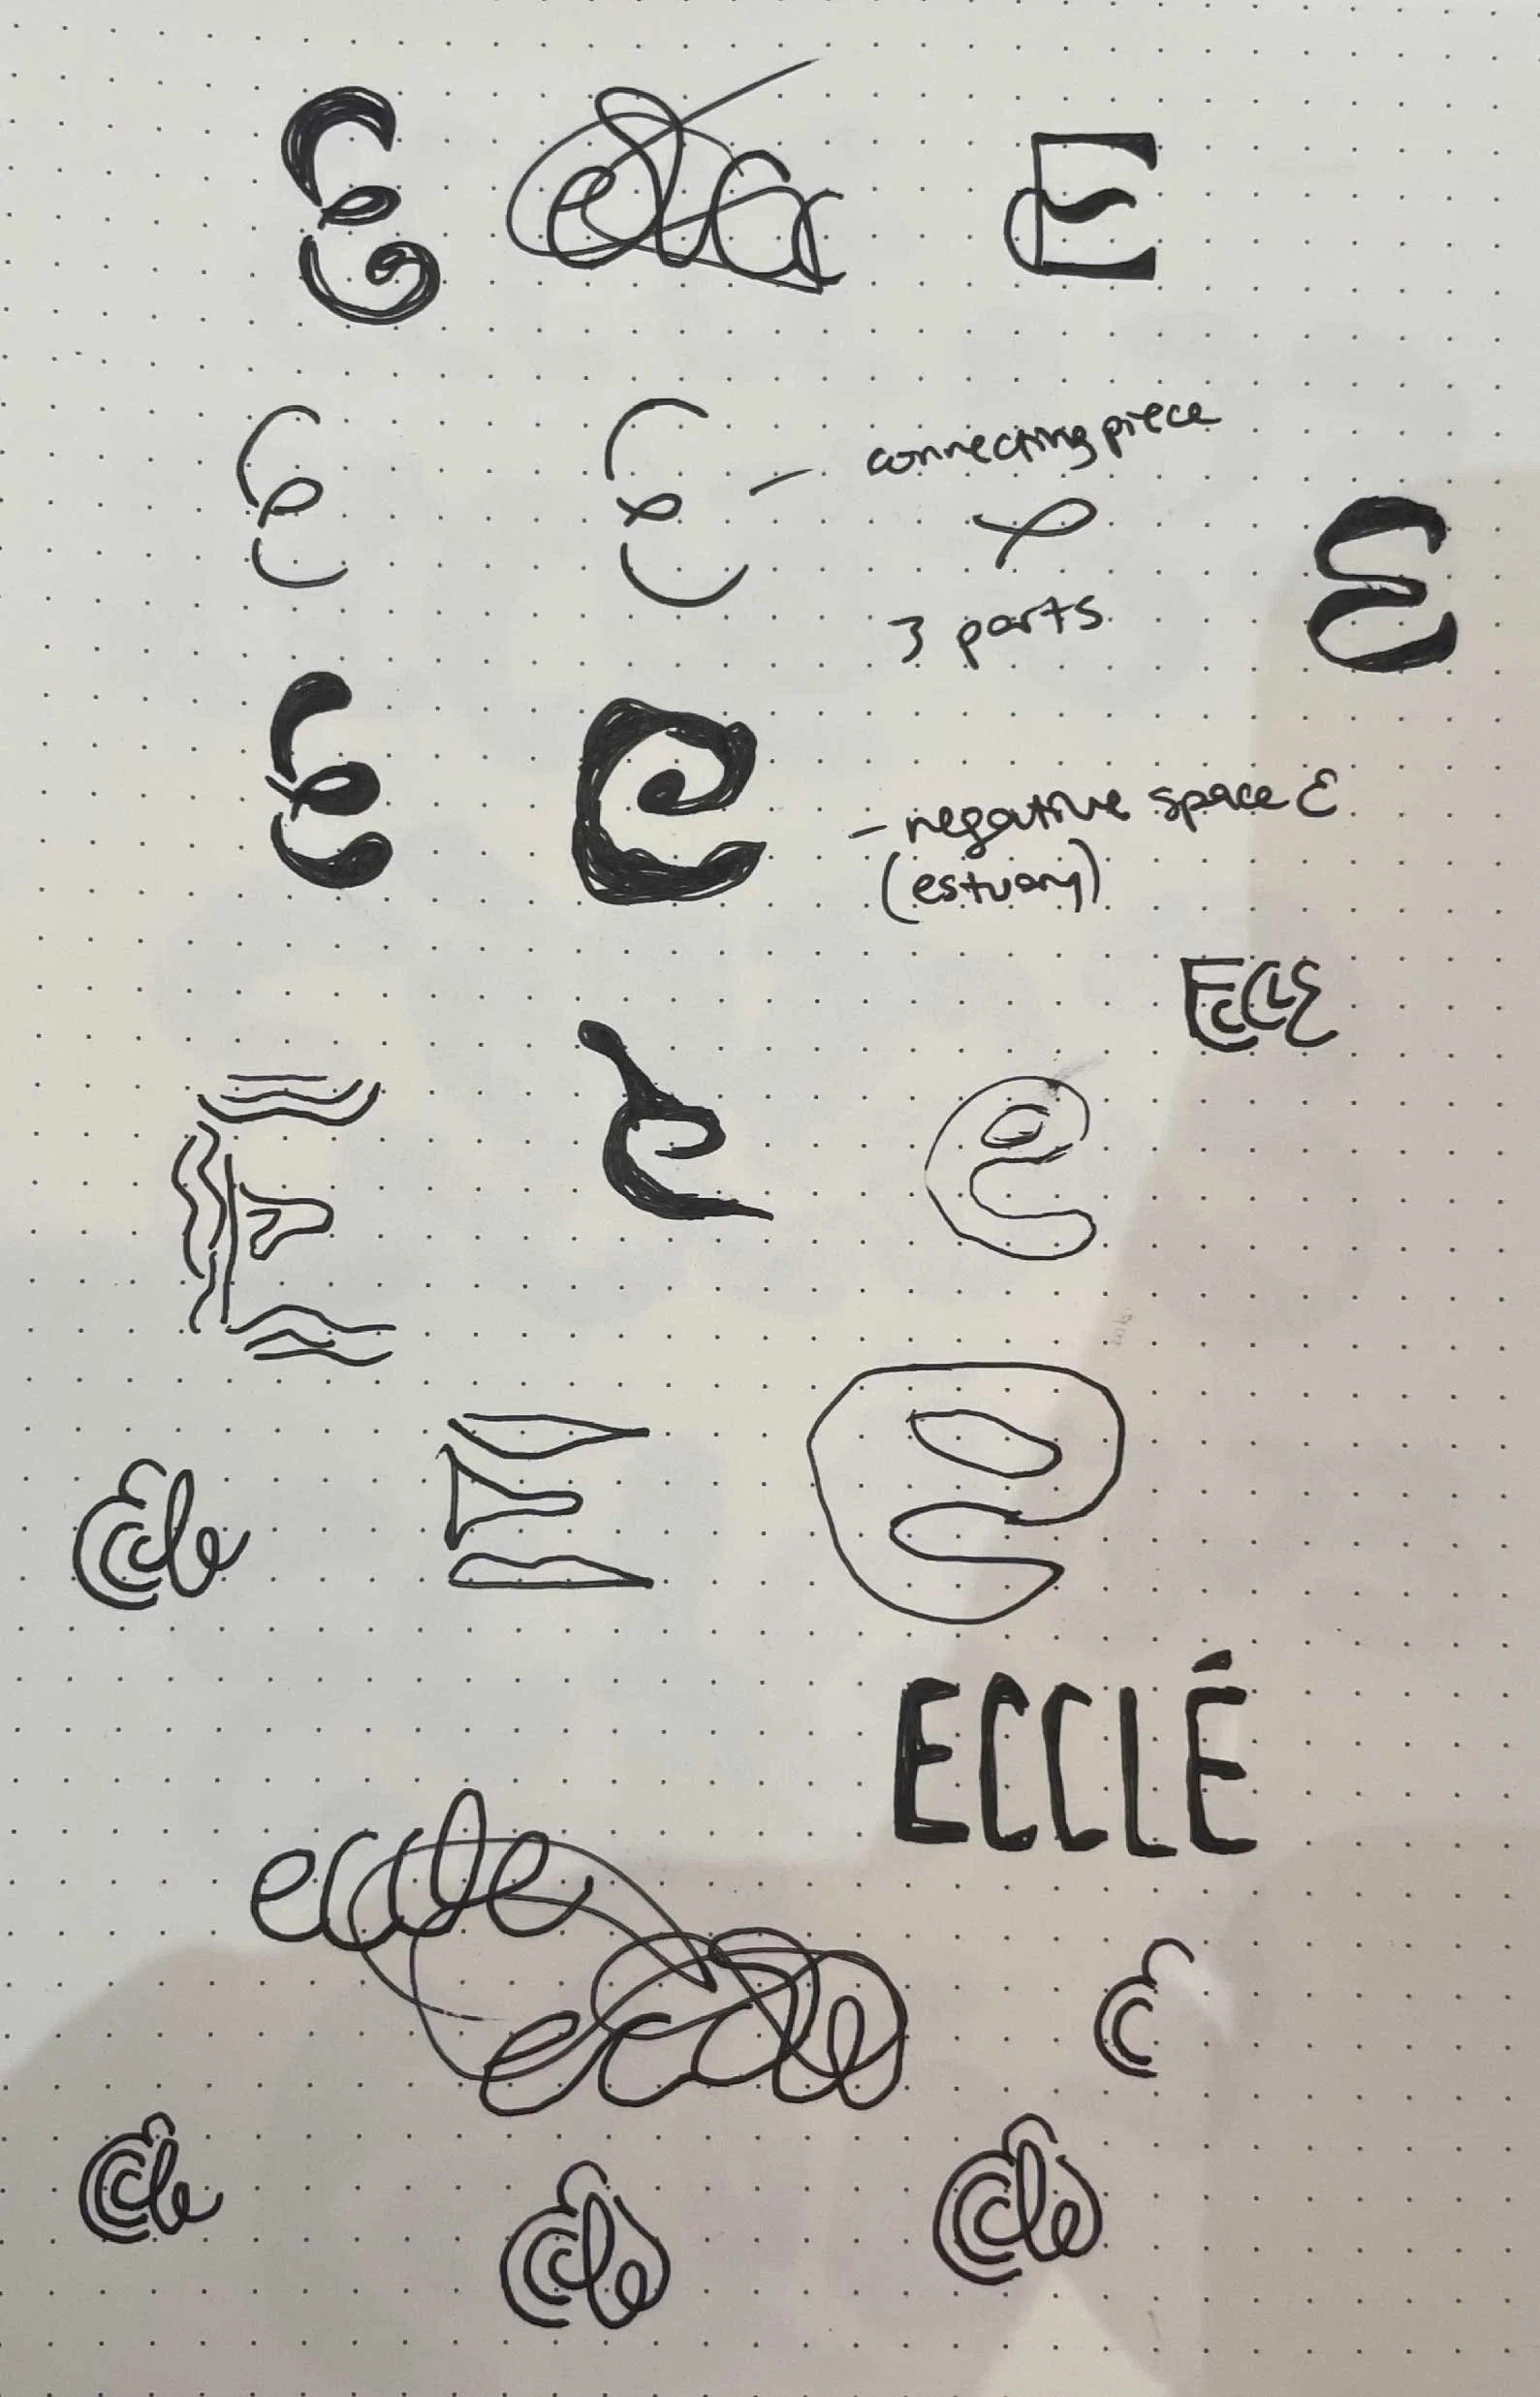 E
E
E
E
connecting piece
3 parts
E
E
e
- negative space E
(estuary)
ECCLE
E
e
e
Eccle
E
e
ECCLÉ
eccle
eccle
Ec
Eccle
Eccle
Eccle